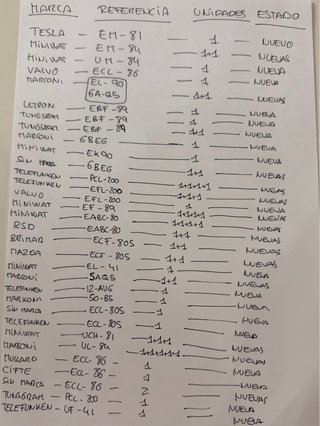 MARCA REFERENCIA UNIDADES ESTADO
TESLA - EM-81 — 1 — NUEVO
MINIWAT - EM-84 — 1+1 — NUEVAS
MINIWAT - UM-84 — 1 — NUEVA
VALVO - ECL-86 — 1 — NUEVA
MARCONI - EL-90 — 1 — NUEVA
6A-Q5 — 1+1 — NUEVAS
EBF-89 — 1 — NUEVA
TUNGSRAM - EBF-89 — 1 — NUEVA
TUNGSRAM - EBF-89 — 1 — NUEVA
MARCONI - 6BEG — 1 — NUEVA
MINIWAT - EK90 — 1 — NUEVA
SIN MARCA - 6BEG — 1 — NUEVA
TELEFUNKEN - PCL-200 — 1 — NUEVA
TELEFUNKEN - EFL-200 — 1+1+1+1 — NUEVAS
VALVO - EFL-200 — 1 — NUEVA
MINIWAT - EF-89 — 1+1 — NUEVAS
MINIWAT - EABC-80 — 1+1+1 — NUEVAS
RSD - EABC-80 — 1+1 — NUEVAS
BRIMAR - ECF-805 — 1+1 — NUEVAS
MAZDA - ECF-805 — 1 — NUEVA
MINIWAT - EL-41 — 1 — NUEVA
MARCONI - 5AQ5 — 1+1 — NUEVAS
TELEFUNKEN - 12-AU6 — 1 — NUEVA
MARKONI - SO-B5 — 1 — NUEVA
SIN MARCA - ECL-805 — 1 — NUEVA
TELEFUNKEN - ECL-805 — 1 — NUEVA
MINIWAT - UCH-81 — 1+1 — NUEVAS
MARCONI - UL-84 — 1+1+1+1+1 — NUEVAS
MULLARD - ECL-86 — 1 — NUEVA
CIFTE - ECL-86 — 1 — NUEVA
SIN MARCA - ECL-86 — 2 — NUEVAS
TUNGSRAM - PCL-200 — 1 — NUEVA
TELEFUNKEN - UF-41 — 1 — NUEVA